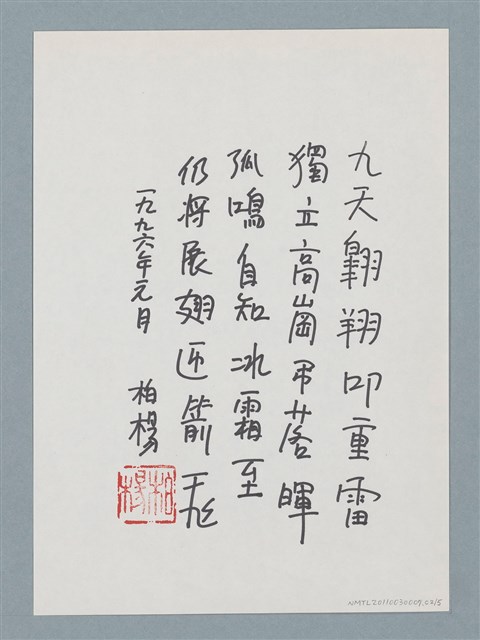 九天翱翔叩重雷
獨立高崗弔落暉
孤鳴自知冰霜至
仍将展翅迎箭飛
一九九六年元月
柏楊
柏楊
NMTL20110030007.02/5